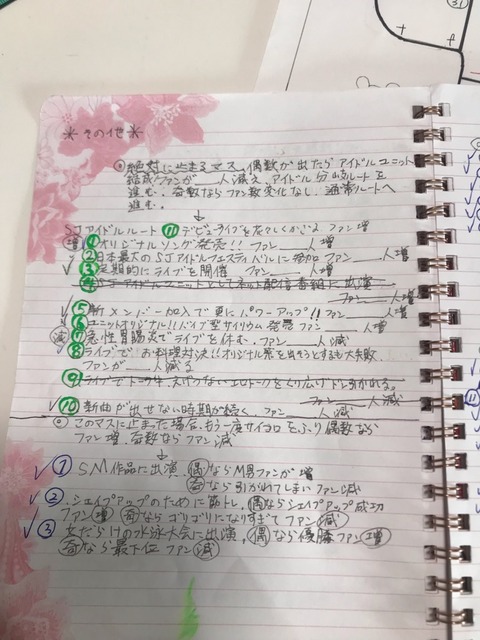 *その他*
絶対に止まるマス 偶数が出たらアイドルユニット
結成ファンが___人増え、アイドル分岐ルートを
進む。奇数ならファン数変化なし 通常ルートへ
進む。
↓
SJアイドルルート ⑪デビューライブを ファン増
増 ①オリジナルソング発売!! ファン___人増
✓②日本最大のSJアイドルフェスティバルに参加 ファン___人増
✓③定期的にライブを開催 ファン___人増
④SJアイドルユニットとしてネット配信番組に出演
ファン___人増
✓⑤新メンバー加入で更にパワーアップ!! ファン___人増
✓⑥ユニットオリジナル!!バイブ型サイリウム発売 ファン___人増
減 ⑦急性胃腸炎でライブを休む。ファン___人減
✓⑧ライブでお料理対決!!オリジナル 出そうとするも大失敗
ファンが___人減る
⑨ライブでトーク中 えげつないエロトークをくり広げドン引かれる。
ファン___人減
✓⑩新曲が出せない時期が続く ファン___人減
○このマスに止まった場合、もう一度サイコロをふり偶数なら
ファン増、奇数ならファン減
↓
✓①SM作品に出演、偶ならM男ファンが増
奇なら引かれてしまいファン減
✓②シェイプアップのために筋トレ、偶ならシェイプアップ成功
ファン増 奇ならゴリゴリになりすぎてファン減
✓③女だらけの水泳大会に出演、偶なら優勝ファン増
奇なら最下位ファン減
31
11